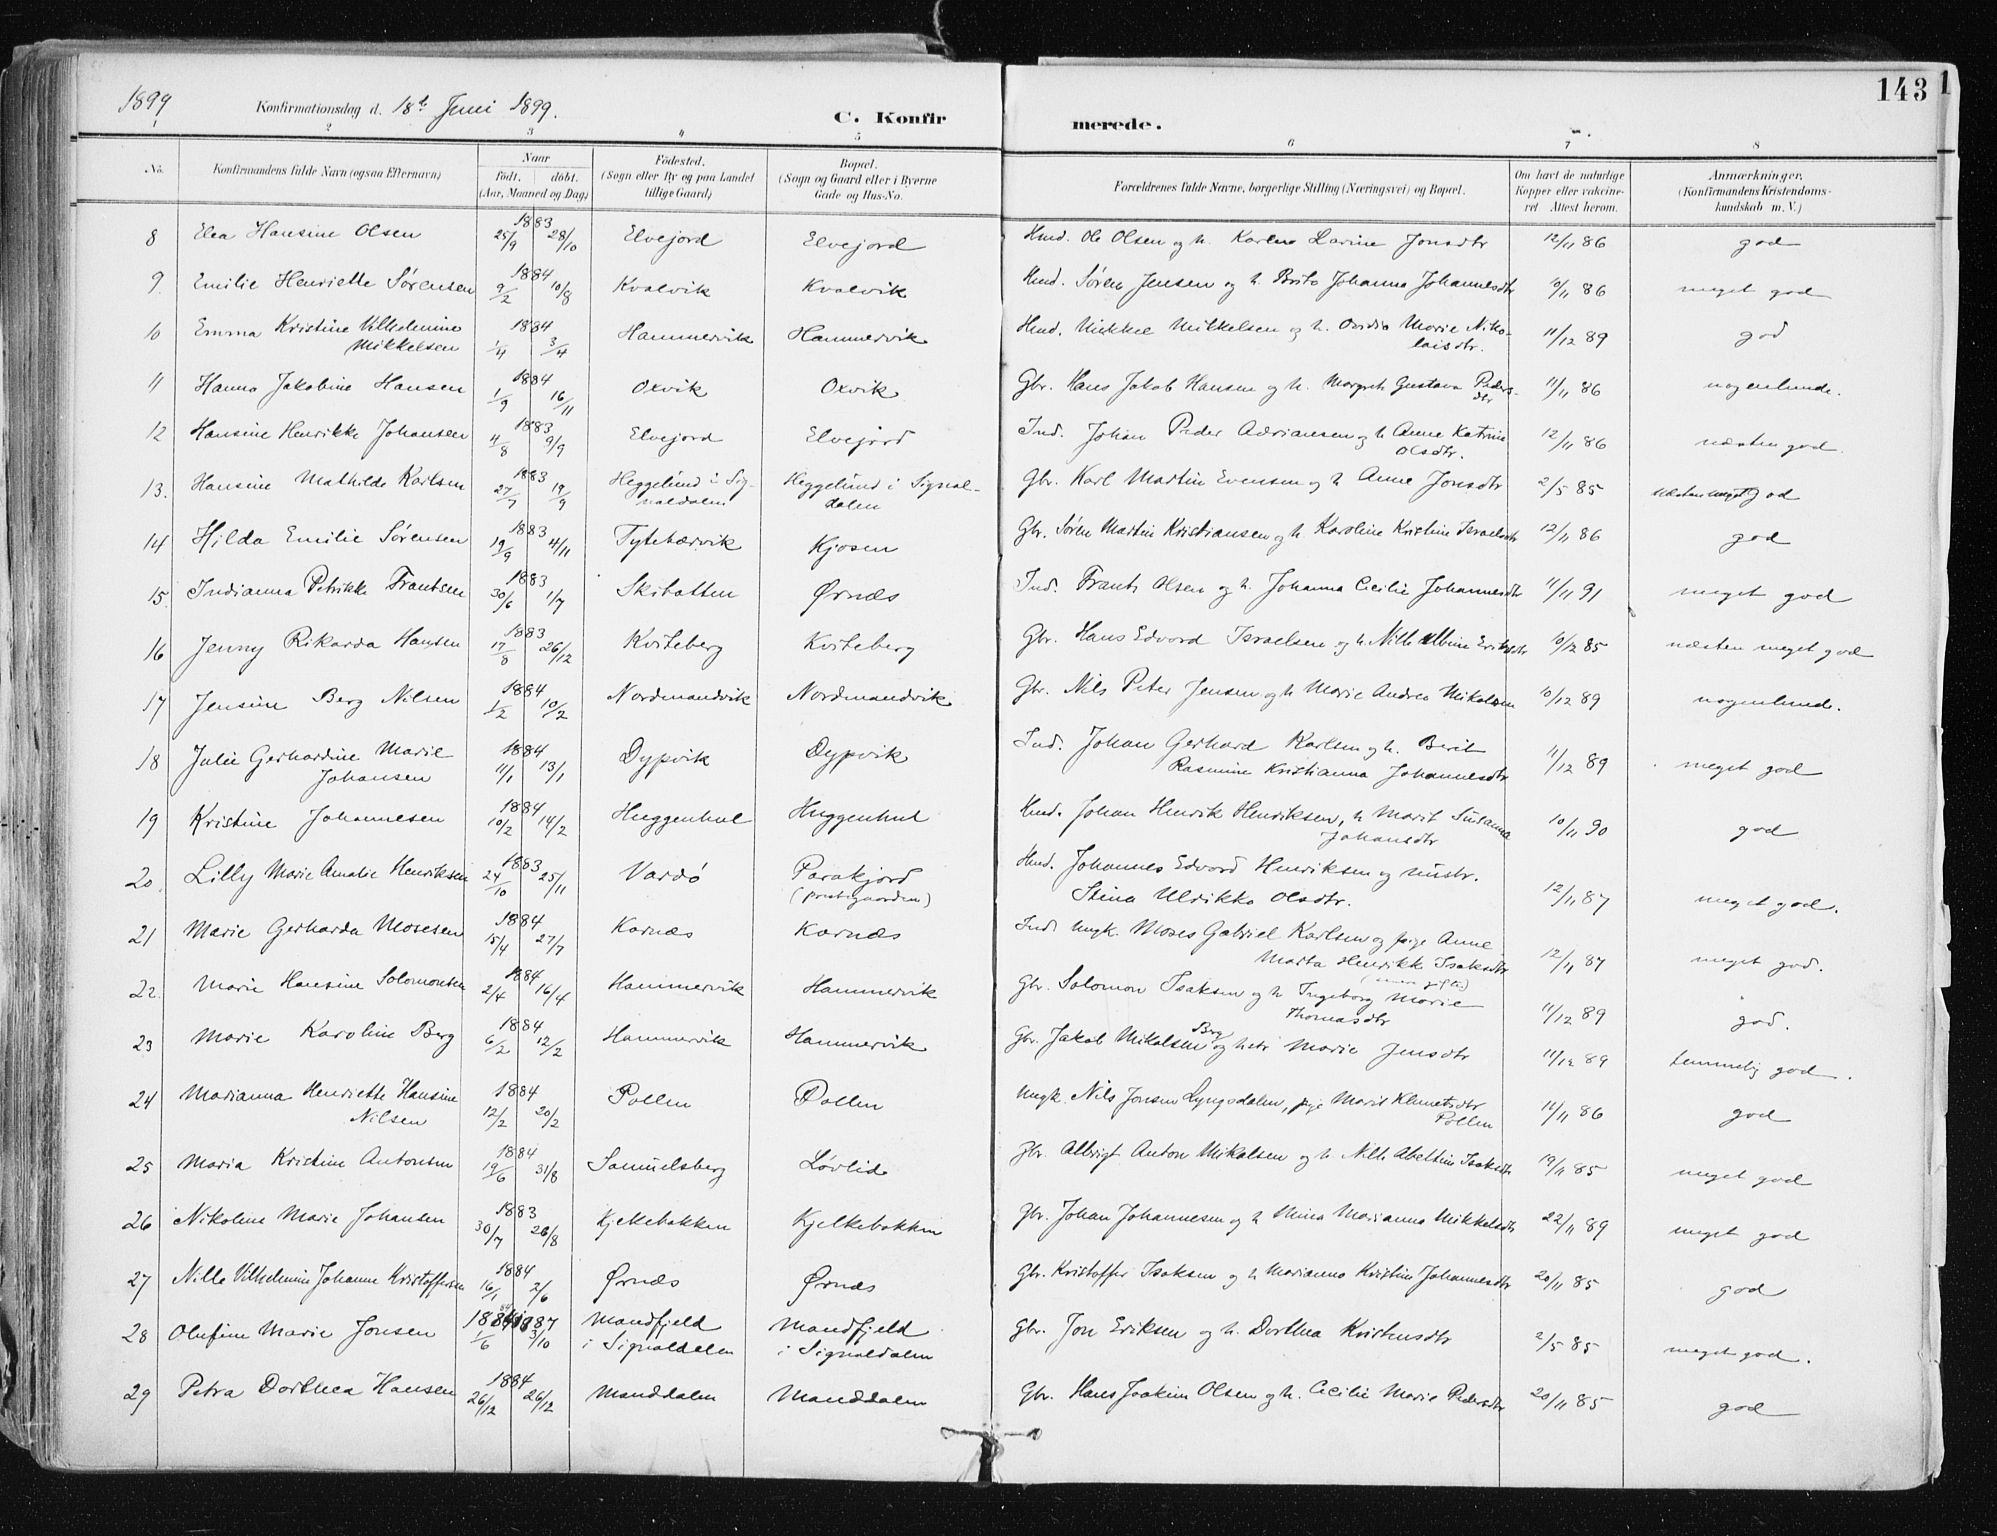 143
1899 Konfirmationsdag d. 18de Juni 1899. C. Konfir merede.
1 2 3 4 5 6 7 8
No. Konfirmandens fulde Navn (ogsaa Efternavn) Naar født. døbt. (Aar, Maaned og Dag) Fødested. (Sogn eller By og paa Landet tillige Gaard) Bopæl. (Sogn og Gaard eller i Byerne Gade og Hus-No. Forældrenes fulde Navne, borgerlige Stilling (Næringsvei) og Bopæl. Om havt de naturlige Kopper eller vakcineret Attest herom. Anmærkninger. (Konfirmandens Kristendomskundskab m. V.)
8 Elea Hansine Olsen 1883 25/9 28/10 Elvejord Elvejord Hmd. Ole Olsen og h. Karlena Larine Jonsdtr 12/11 86 god
9. Emilie Henriette Sørensen 1884 9/2 10/8 Kvalvik Kvalvik Hmd. Søren Jensen og h. Brita Johanna Johannesdtr 10/11 86 meget god
10 Emma Kristine Vilhelmine Mikkelsen 1884 1/4 3/4 Hammervik Hammervik Hmd. Mikkel Mikkelsen og h. Ovidia Marie Nikolaisdtr. 11/12 89 god
11 Hanna Jakobine Hansen 1884 1/9 16/11 Oxvik Oxvik Gbr. Hans Jakob Hansen og h. Margreth Gustava Pedersdtr 11/11 86 nogenlunde.
12 Hansine Henrikke Johansen 1883 4/8 9/9 Elvejord Elvejord Ind. Johan Peder Adriansen og h Anne Katrine Olsdtr. 12/11 86 næsten god.
13. Hansine Mathilde Karlsen 1883 27/7 19/9 Heggelund i Signaldalen Heggelund i Signaldalen Gbr. Karl Martin Evensen og h Anne Jonsdtr 2/5 85 næsten meget god
14 Hilda Emilie Sørensen 1883 19/9 4/11 Tytebærvik Kjosen Gbr. Søren Martin Kristiansen og h. Karoline Kristine Israelsdtr 12/11 86 god
15. Indianna Petrikke Frantsen 1883 30/6 1/7 Skibotten Ørnæs Ind. Frants Olsen og h. Johanna Cecilie Johannesdtr 11/11 91 meget god
16 Jenny Rikarda Hansen 1883 17/8 26/12 Kviteberg Kviteberg Gbr. Hans Edvard Israelsen og h. Nille Albine Eriksdtr 10/12 85 næsten meget god
17 Jensine Berg Nilsen 1884 1/2 10/2 Nordmandvik Nordmandvik Gbr. Nils Peter Jensen og h Marie Andrea Mikalsen 10/12 89 nogenlunde.
18 Julie Gerhardine Marie Johansen 1884 11/1 13/1 Dypvik Dypvik Ind. Johan Gerhard Karlsen og h. Berit Rasmine Kristianna Johannesdtr 11/12 89 meget god
19 Kristine Johannesen 1884 10/2 14/2 Huggenhul Huggenhul Hmd. Johan Henrik Henriksen, h Marit Susanna Johansdtr 10/11 90 god
20. Lilly Marie Amalie Henriksen 1883 24/10 25/11 Vardø Parakjord (prestegaarden) Hmd. Johannes Edvard Henriksen og hustr. Stina Ulrikka Olsdtr. 12/11 87 meget god.
21 Marie Gerharda Mosesen 1884 15/4 27/7 Karnæs Karnæs Ind. ungk. Moses Gabriel Karlsen og pige Anne Marta Henrikke Isaksdtr 12/11 87 meget god.
22. Marie Hansine Solomonsen 1884 2/4 16/4 Hammervik Hammervik Gbr. Solomon Isaksen og h Ingeborg Marie Thomasdtr 11/12 89 god.
23 Marie Karoline Berg 1884 6/2 12/2 Hammervik Hammervik Gbr. Jakob Mikalsen Berg og hstr Marie Jensdtr 11/12 89 temmelig god.
24 Marianna Henriette Hansine Nilsen 1884 12/2 20/2 Pollen Pollen ungk. Nils Jonsen Lyngsdalen, pige Marit Klemetsdtr Pollen 12/11 86 god
25 Maria Kristine Antonsen 1884 19/6 31/8 Samuelsberg Løvlid Gbr. Albrigt Anton Mikalsen og h. Nille Abeltine Isaksdtr 19/11 85 meget god
26 Nikoline Marie Johansen 1883 30/7 26/8 Kjelkebakken Kjelkebakken Gbr. Johan Johannesen og h Mina Marianna Mikkelsdtr 22/11 89 meget god
27 Nille Vilhelmine Johanne Kristoffersen 1884 16/1 2/6 Ørnæs Ørnæs Gbr. Kristoffer Isaksen og h Marianna Kristine Johannesdtr 20/11 85 god
28 Olufine Marie Jonsen 1/6 3/10 Mandfjeld i Signaldalen Mandfjeld i Signaldalen Gbr. Jon Eriksen og h. Dorthea Kristensdtr 2/5 85 meget god.
29 Petra Dorthea Hansen 1884 26/12 26/12 Manddalen Manddalen Gbr. Hans Joakim Olsen og h. Cecilie Marie Pedersdtr 20/11 85 god